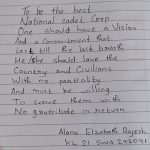 To be the best
National cadet Corp
One should have a Vision
And a Commitment that
Last till the last breath
He/she should love the
Country and Civilians
With no partiality
And must be willing
To serve them with
No gratitude in return
Alana Elzabath Rajesh
KL 21 SWA 292091